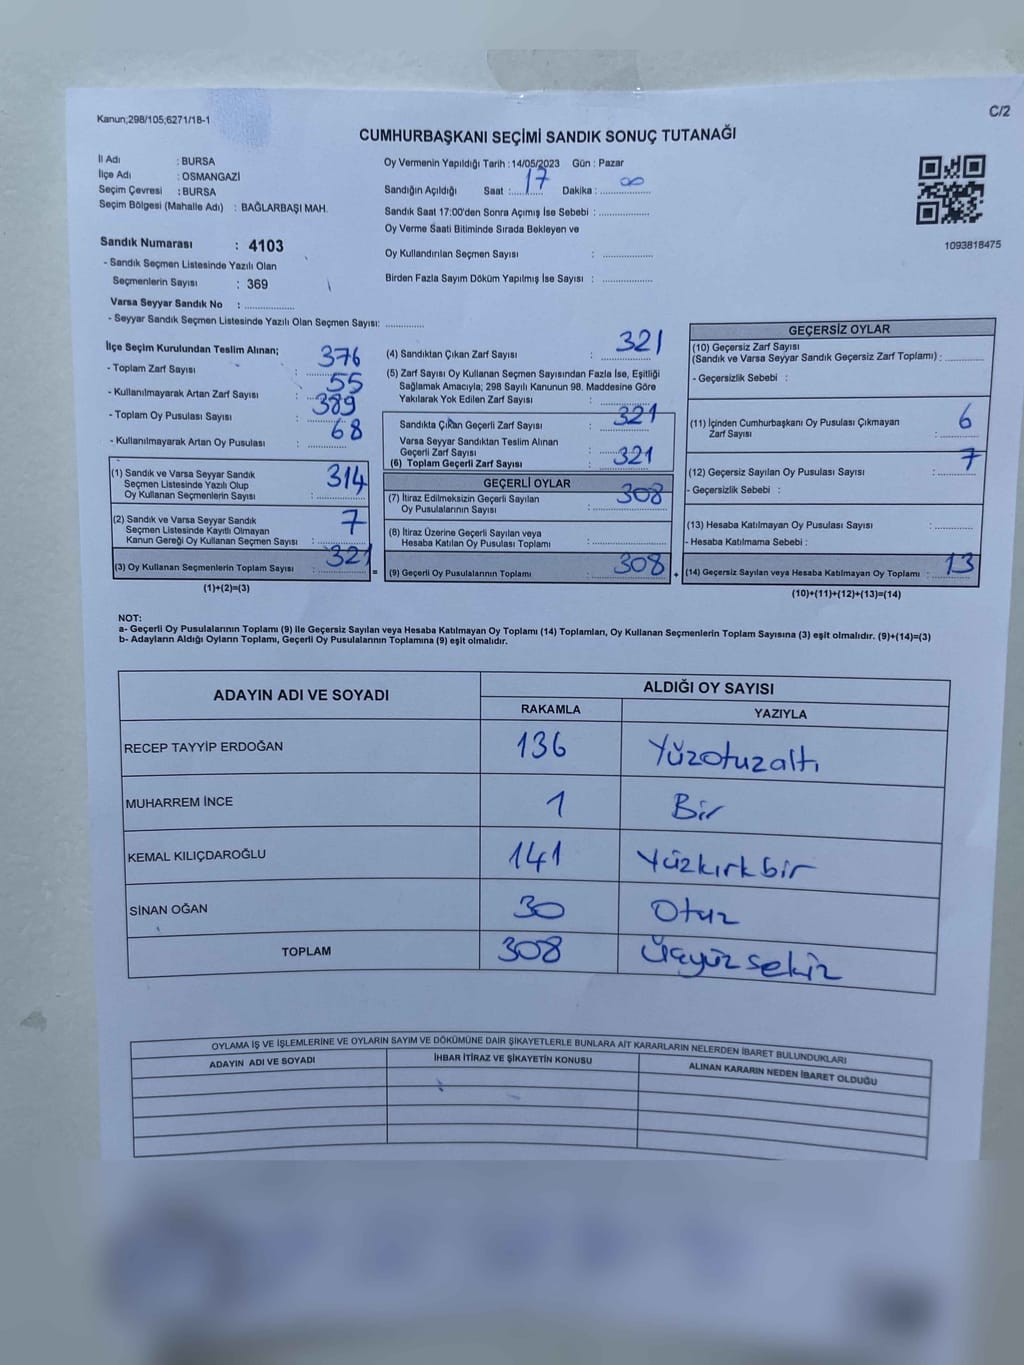 Kanun;298/105;6271/18-1
C/2
CUMHURBAŞKANI SEÇİMİ SANDIK SONUÇ TUTANAĞI
İl Adı : BURSA
İlçe Adı : OSMANGAZİ
Seçim Çevresi : BURSA
Seçim Bölgesi (Mahalle Adı) : BAĞLARBAŞI MAH.
Sandık Numarası : 4103
- Sandık Seçmen Listesinde Yazılı Olan
Seçmenlerin Sayısı : 369
Varsa Seyyar Sandık No : ..............
- Seyyar Sandık Seçmen Listesinde Yazılı Olan Seçmen Sayısı: ............
Oy Vermenin Yapıldığı Tarih : 14/05/2023 Gün : Pazar
Sandığın Açıldığı Saat : 17 Dakika : 00
Sandık Saat 17:00'den Sonra Açımış İse Sebebi : ..............
Oy Verme Saati Bitiminde Sırada Bekleyen ve
Oy Kullandırılan Seçmen Sayısı : ..............
Birden Fazla Sayım Döküm Yapılmış İse Sayısı : ..............
1093818475
İlçe Seçim Kurulundan Teslim Alınan;
- Toplam Zarf Sayısı : 376
- Kullanılmayarak Artan Zarf Sayısı : 55
- Toplam Oy Pusulası Sayısı : 389
- Kullanılmayarak Artan Oy Pusulası : 68
(1) Sandık ve Varsa Seyyar Sandık
Seçmen Listesinde Yazılı Olup
Oy Kullanan Seçmenlerin Sayısı : 314
(2) Sandık ve Varsa Seyyar Sandık
Seçmen Listesinde Kayıtlı Olmayan
Kanun Gereği Oy Kullanan Seçmen Sayısı : 7
(3) Oy Kullanan Seçmenlerin Toplam Sayısı : 321
(1)+(2)=(3)
=
(4) Sandıktan Çıkan Zarf Sayısı : 321
(5) Zarf Sayısı Oy Kullanan Seçmen Sayısından Fazla İse, Eşitliği
Sağlamak Amacıyla; 298 Sayılı Kanunun 98. Maddesine Göre
Yakılarak Yok Edilen Zarf Sayısı : ..............
Sandıkta Çıkan Geçerli Zarf Sayısı : 321
Varsa Seyyar Sandıktan Teslim Alınan
Geçerli Zarf Sayısı : ..............
(6) Toplam Geçerli Zarf Sayısı : 321
GEÇERLİ OYLAR
(7) İtiraz Edilmeksizin Geçerli Sayılan
Oy Pusulalarının Sayısı : 308
(8) İtiraz Üzerine Geçerli Sayılan veya
Hesaba Katılan Oy Pusulası Toplamı : ..............
(9) Geçerli Oy Pusulalarının Toplamı : 308
+
GEÇERSİZ OYLAR
(10) Geçersiz Zarf Sayısı
(Sandık ve Varsa Seyyar Sandık Geçersiz Zarf Toplamı) : ............
- Geçersizlik Sebebi :
(11) İçinden Cumhurbaşkanı Oy Pusulası Çıkmayan
Zarf Sayısı : 6
(12) Geçersiz Sayılan Oy Pusulası Sayısı : 7
- Geçersizlik Sebebi :
(13) Hesaba Katılmayan Oy Pusulası Sayısı : ............
- Hesaba Katılmama Sebebi :
(14) Geçersiz Sayılan veya Hesaba Katılmayan Oy Toplamı : 13
(10)+(11)+(12)+(13)=(14)
NOT:
a- Geçerli Oy Pusulalarının Toplamı (9) ile Geçersiz Sayılan veya Hesaba Katılmayan Oy Toplamı (14) Toplamları, Oy Kullanan Seçmenlerin Toplam Sayısına (3) eşit olmalıdır. (9)+(14)=(3)
b- Adayların Aldığı Oyların Toplamı, Geçerli Oy Pusulalarının Toplamına (9) eşit olmalıdır.
ADAYIN ADI VE SOYADI
ALDIĞI OY SAYISI
RAKAMLA YAZIYLA
RECEP TAYYİP ERDOĞAN 136 Yüzotuzaltı
MUHARREM İNCE 1 Bir
KEMAL KILIÇDAROĞLU 141 Yüzkırkbir
SİNAN OĞAN 30 Otuz
TOPLAM 308 Üçyüzsekiz
OYLAMA İŞ VE İŞLEMLERİNE VE OYLARIN SAYIM VE DÖKÜMÜNE DAİR ŞİKAYETLERLE BUNLARA AİT KARARLARIN NELERDEN İBARET BULUNDUKLARI
ADAYIN ADI VE SOYADI İHBAR İTİRAZ VE ŞİKAYETİN KONUSU ALINAN KARARIN NEDEN İBARET OLDUĞU